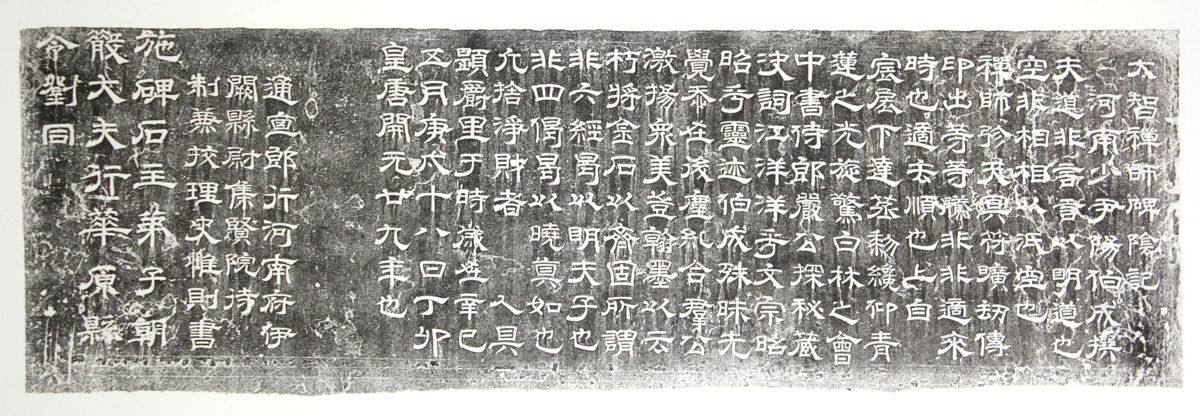 大智禪師碑陰記
河南少尹陽伯成撰
夫道非言言以明道也
空非相相以泯空也
禪師珍我興符曠劫傳
印出等等騰非非適來
時也適去順也上自
宸扆下達茲勤繞仰青
蓮之光旋驚白林之會
中書侍郎嚴公探祕藏
決詞江洋洋乎文宗昭
昭乎靈迹伯成殊昧先
覺忝在後塵糺合群公
激揚眾美豈翰墨以云
朽將金石以齊固所謂
非六經曷以明夫子也
非四偈曷以曉真如也
允捨淨財者 人具
題爵里于時歲在辛巳
五月庚戌十八日丁卯
皇唐開元廿九年也
通直郎行河南府伊
闕縣尉集賢院待
制兼校理史惟則書
施碑石主弟子朝
散大夫行華原縣
令劉同